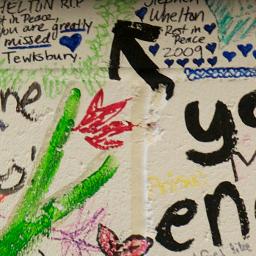 HELTON R.I.P
st in Peace
you are greatly
missed!
Tewksbury.
Stephen
Whelton
Rest in
Peace
2009
ne
yo
en